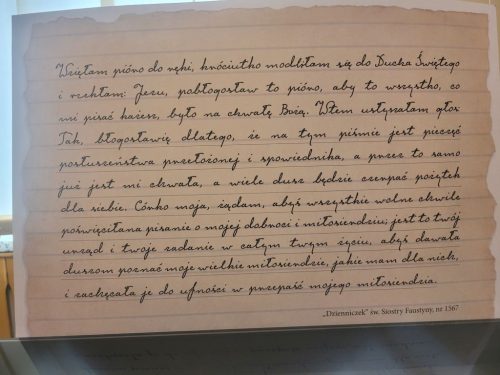 Wzięłam pióro do ręki, króciutko modliłam się do Ducha Świętego
i rzekłam: Jezu, pobłogosław to pióro, aby to wszystko, co
mi pisać każesz, było na chwałę Bożą. Wtem usłyszałam głos:
Tak, błogosławię dlatego, że na tym piśmie jest pieczęć
posłuszeństwa przełożonej i spowiednika, a przez to samo
już jest mi chwała, a wiele dusz będzie czerpać pożytek
dla siebie. Córko moja, żądam, abyś wszystkie wolne chwile
poświęcała na pisanie o mojej dobroci i miłosierdziu; jest to twój
urząd i twoje zadanie w całym twym życiu, abyś dawała
duszom poznać moje wielkie miłosierdzie, jakie mam dla nich,
i zachęcała je do ufności w przepaść mojego miłosierdzia.
„Dzienniczek” św. Siostry Faustyny, nr 1567